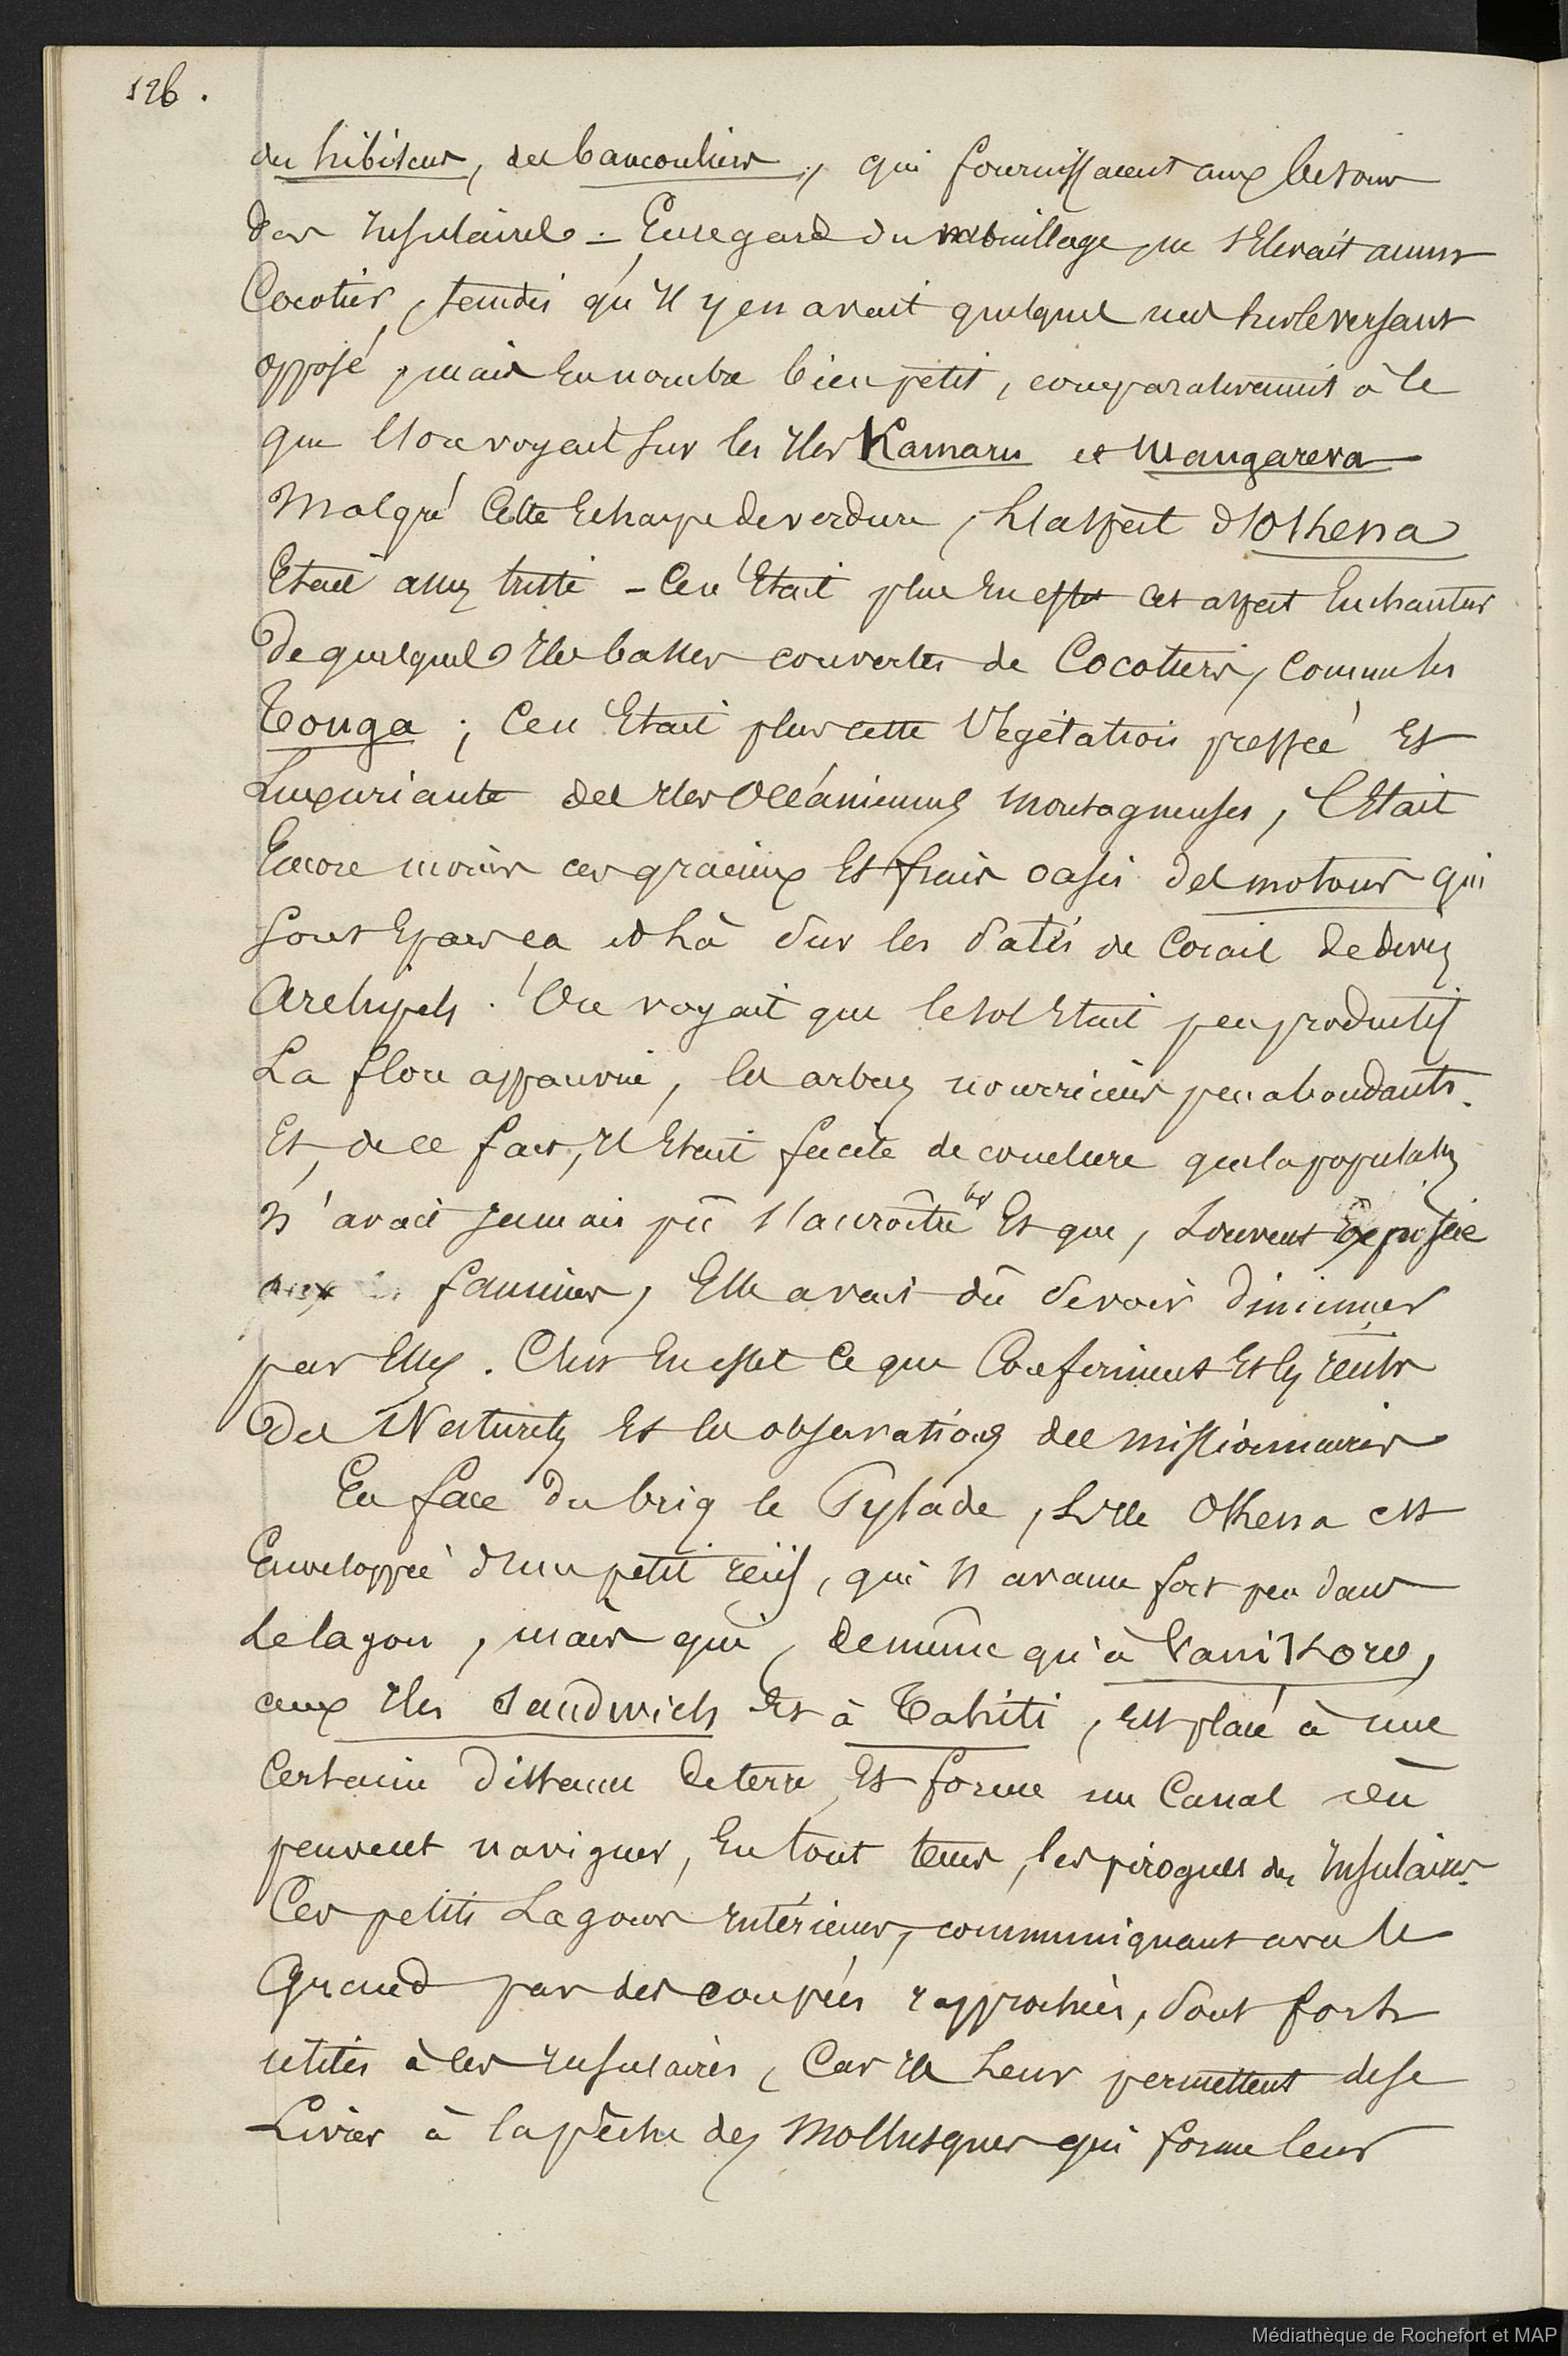 126.
des hibiscus, des bancouliers, qui fournissaient aux besoins
des Insulaires - En regard du mouillage, ne s'élevait aucun
Cocotier, tandis qu'il y en avait quelques uns sur le versant
opposé, mais en nombre bien petit, comparativement à ce
que l'on voyait sur les Iles Kamaru et Mangareva
Malgré cette écharpe de verdure, l'aspect d'Okhena
était assez triste - Ce n'était plus en effet cet aspect enchanteur
de quelques Iles basses couvertes de Cocotiers, comme les
Tonga ; Ce n'était plus cette Végétation pressée et
Luxuriante des Iles Océaniennes montagneuses, C'était
Encore moins ces gracieux et frais oasis des motous qui
sont épars ca et là sur les patés de Corail de divers
Archipels. On voyait que le sol était peu productif
La flore appauvrie, les arbres nourriciers peu abondants.
Et, de ce fait, Il était facile de conclure que la population
n'avait jamais pû s'accroître et que, souvent Exposée
aux famines, Elle avait dû devoir diminuer
par Elles. C'est en effet ce que Confirment et les récits
des Naturels et les observations des missionnaires
En face du brig le Pylade, L'Ile Okhena est
Enveloppée d'un petit récif, qui s'avance fort peu dans
Le lagon, mais qui, de même qu'à Vanikoro,
aux Iles Sandwich et à Tahiti, est placé à une
Certaine distance de terre, et forme un Canal où
peuvent naviguer, En tout tems, les pirogues des Insulaires.
Ces petits Lagons Intérieurs, communiquant avec le
Grand par des coupées rapprochées, sont forts
utiles à ces Insulaires, Car Ils Leur permettent de se
Livrer à la pêche des Mollusques qui forme leur
Médiathèque de Rochefort et MAP